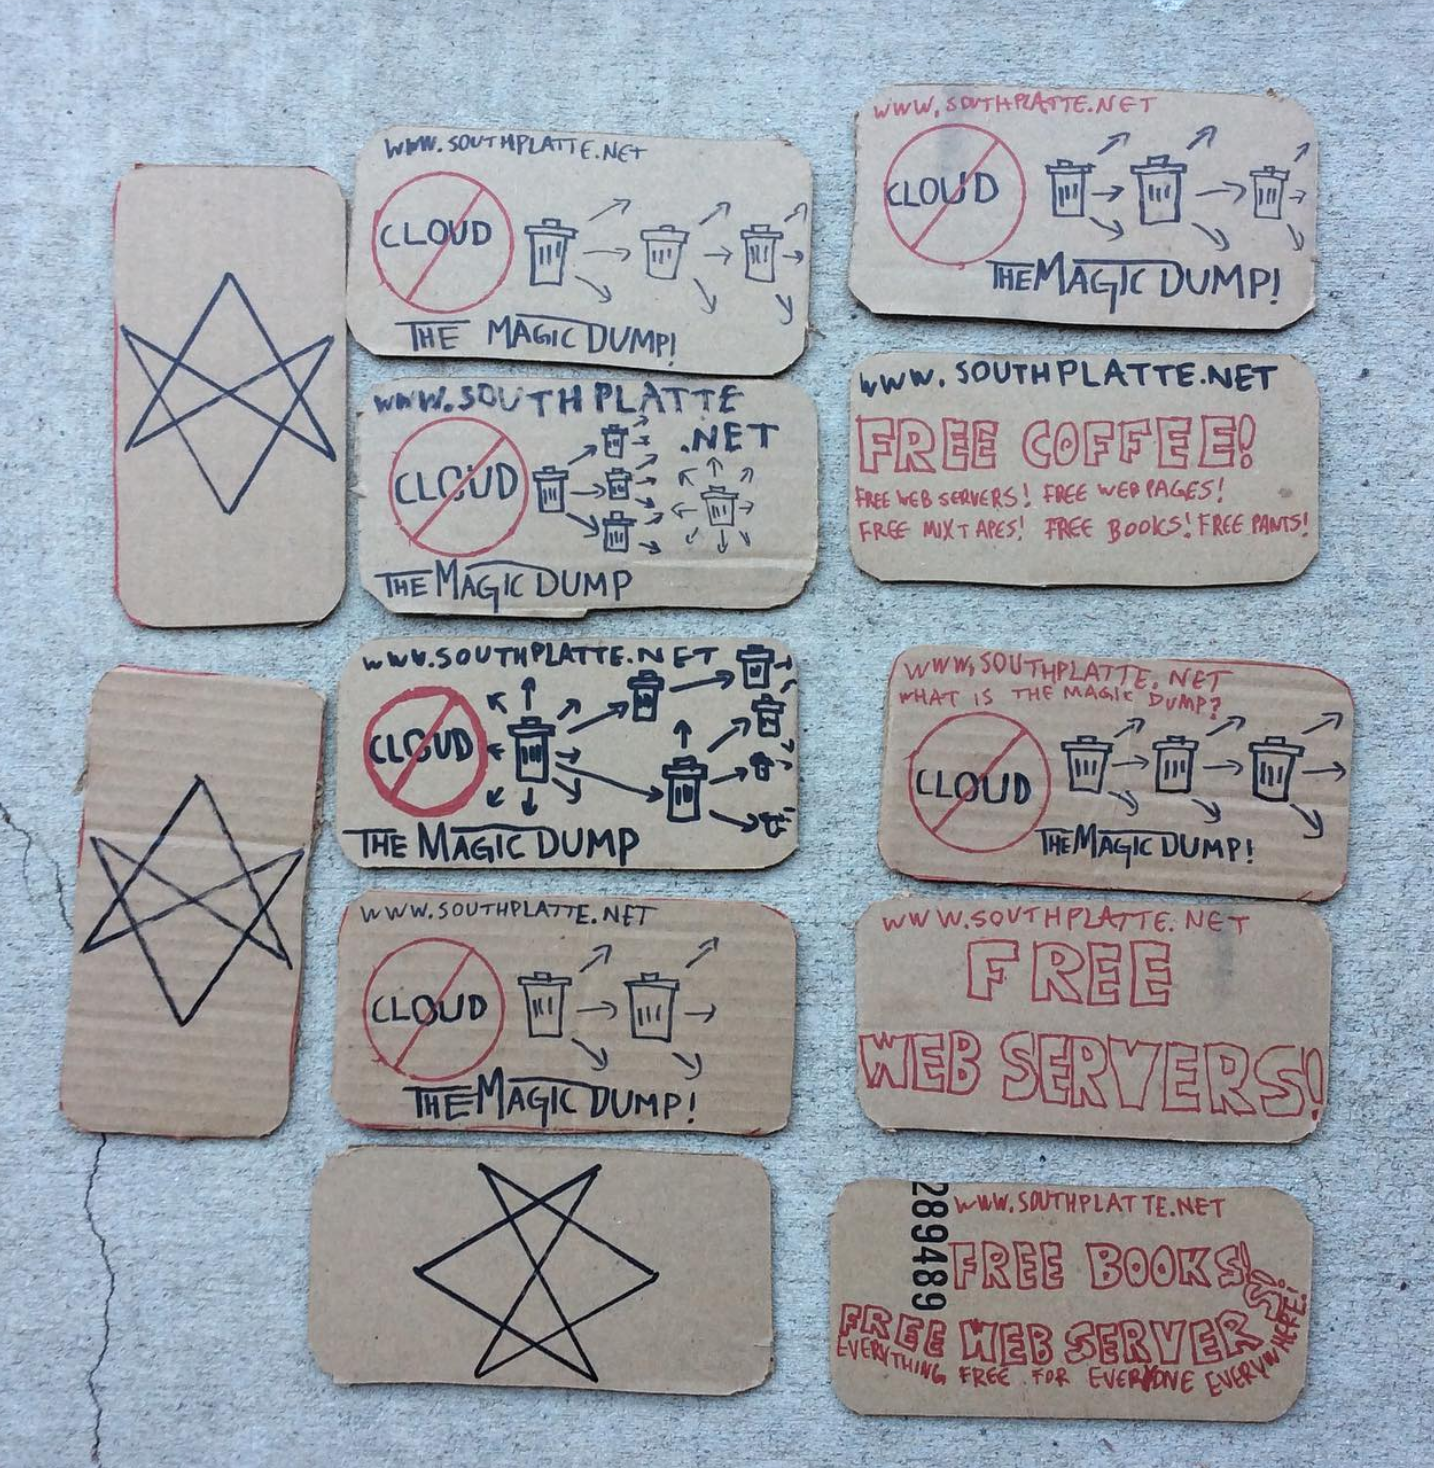 WWW.SOUTHPLATTE.NET
CLOUD
THE MAGIC DUMP!
WWW.SOUTHPLATTE.NET
CLOUD
THE MAGIC DUMP!
WWW.SOUTHPLATTE
.NET
CLOUD
THE MAGIC DUMP
WWW.SOUTHPLATTE.NET
FREE COFFEE!
FREE WEB SERVERS! FREE WEB PAGES!
FREE MIXTAPES! FREE BOOKS! FREE PANTS!
WWW.SOUTHPLATTE.NET
CLOUD
THE MAGIC DUMP
WWW.SOUTHPLATTE.NET
WHAT IS THE MAGIC DUMP?
CLOUD
THE MAGIC DUMP!
WWW.SOUTHPLATTE.NET
CLOUD
THE MAGIC DUMP!
WWW.SOUTHPLATTE.NET
FREE
WEB SERVERS!
289489
WWW.SOUTHPLATTE.NET
FREE BOOKS!
FREE WEB SERVERS!
EVERYTHING FREE FOR EVERYONE EVERYWHERE!